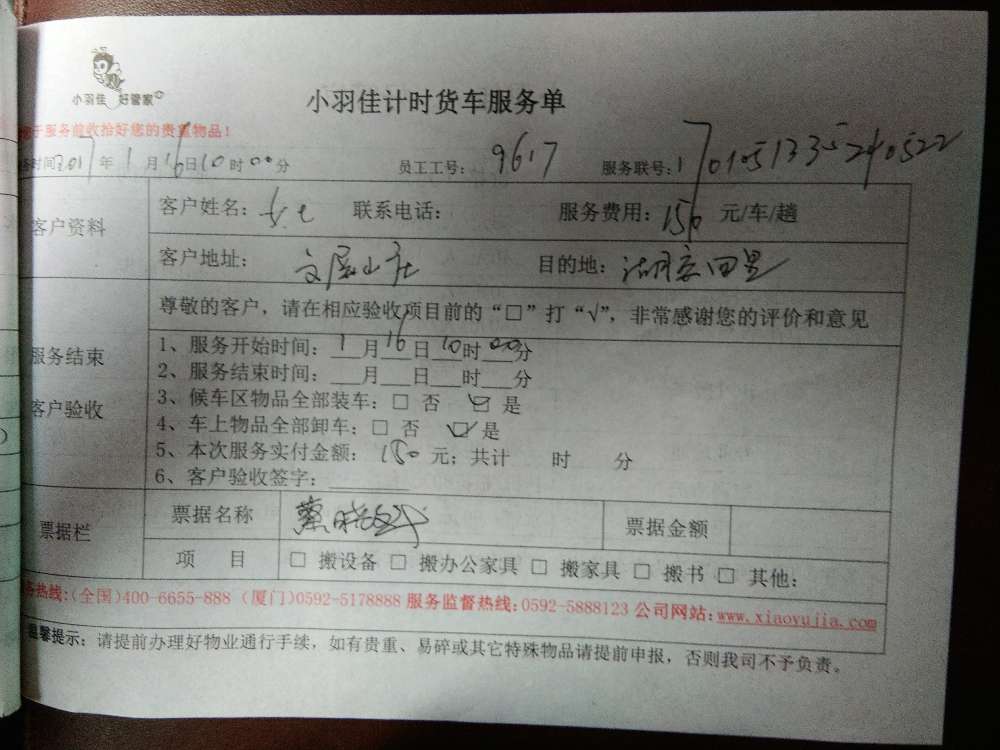 小羽佳 好管家
小羽佳计时货车服务单
于服务前收拾好您的贵重物品！
时间2017年1月16日10时00分 员工工号：9617 服务联号：1701051335240522
客户资料
客户姓名： 联系电话： 服务费用：150元/车/趟
客户地址：文屏山庄 目的地：
尊敬的客户，请在相应验收项目前的“□”打“√”，非常感谢您的评价和意见
服务结束
客户验收
1、服务开始时间：1月16日10时00分
2、服务结束时间：___月___日___时___分
3、候车区物品全部装车：□ 否 ☑ 是
4、车上物品全部卸车：□ 否 ☑ 是
5、本次服务实付金额：150元；共计 时 分
6、客户验收签字：
票据栏
票据名称 蔡晓 票据金额
项 目 □ 搬设备 □ 搬办公家具 □ 搬家具 □ 搬书 □ 其他：
务热线：(全国)400-6655-888 (厦门)0592-5178888 服务监督热线：0592-5888123 公司网站：www.xiaoyujia.com
温馨提示：请提前办理好物业通行手续，如有贵重、易碎或其它特殊物品请提前申报，否则我司不予负责。